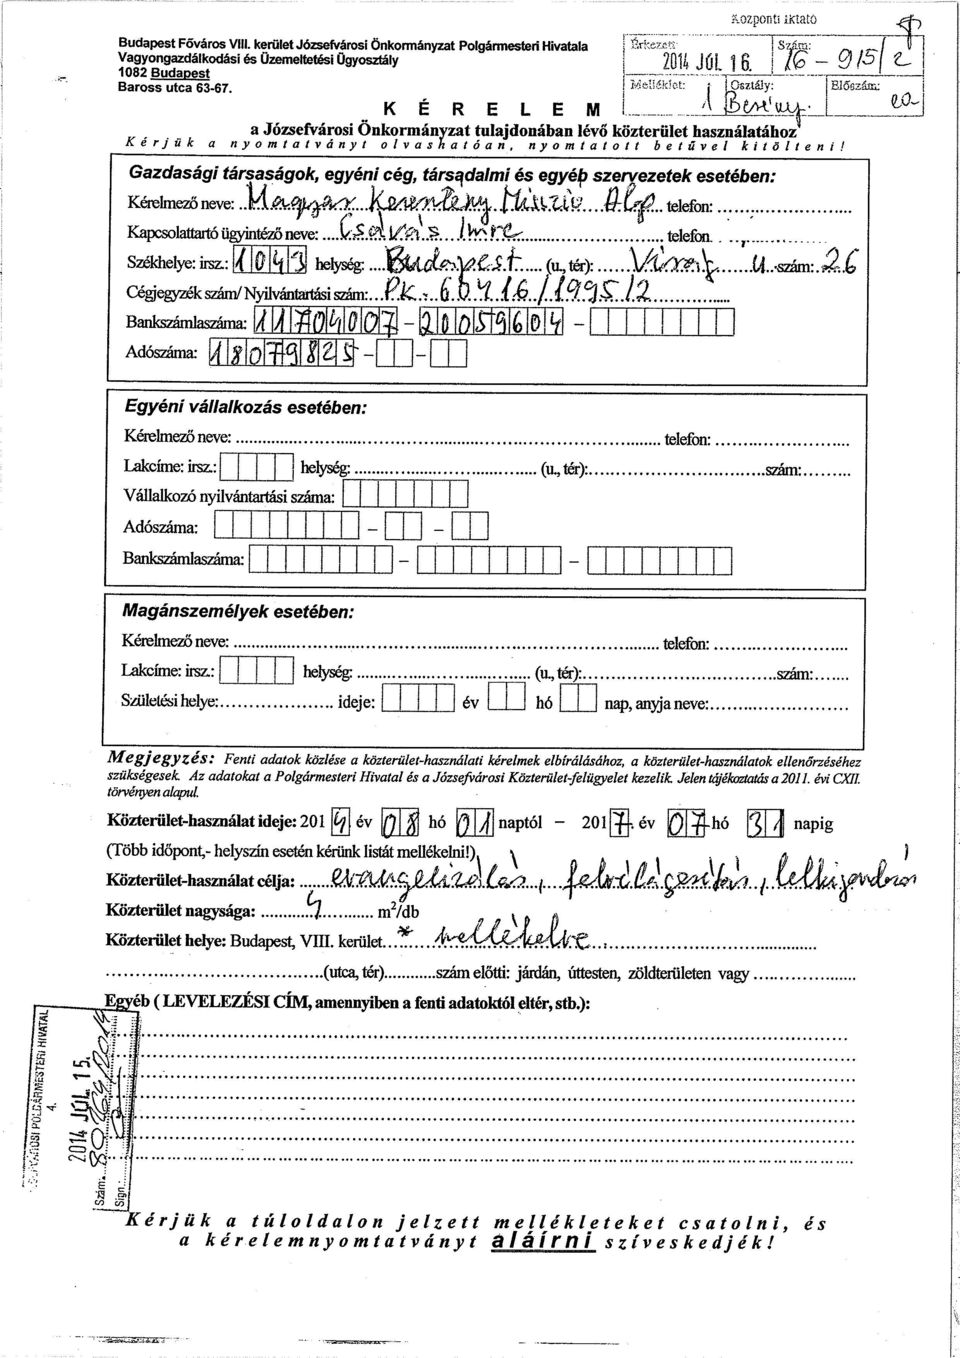 Központi iktató
Budapest Főváros VIII. kerület Józsefvárosi Önkormányzat Polgármesteri Hivatala
Vagyongazdálkodási és Üzemeltetési Ügyosztály
1082 Budapest
Baross utca 63-67.
Érkezett: 2014 JÚL 16. Szám: 16-915/2
Melléklet: 1 Osztály: Előszám:
K É R E L E M
a Józsefvárosi Önkormányzat tulajdonában lévő közterület használatához
Kérjük a nyomtatványt olvashatóan, nyomtatott betűvel kitölteni!
Gazdasági társaságok, egyéni cég, társadalmi és egyéb szervezetek esetében:
Kérelmező neve: Magyar Keresztény Misszió Alp. telefon:
Kapcsolattartó ügyintéző neve: Csalvás Imre telefon
Székhelye: irsz.: 1043 helység: Budapest (u., tér): Virág u. szám: 26
Cégjegyzék szám/ Nyilvántartási szám: Pk. 60416/1995/2
Bankszámlaszáma: 11704007 - 20059604 -
Adószáma: 18079825 - -
Egyéni vállalkozás esetében:
Kérelmező neve: telefon:
Lakcíme: irsz.: helység: (u., tér): szám:
Vállalkozó nyilvántartási száma:
Adószáma: - -
Bankszámlaszáma: - -
Magánszemélyek esetében:
Kérelmező neve: telefon:
Lakcíme: irsz.: helység: (u., tér): szám:
Születési helye: ideje: év hó nap, anyja neve:
Megjegyzés: Fenti adatok közlése a közterület-használati kérelmek elbírálásához, a közterület-használatok ellenőrzéséhez
szükségesek. Az adatokat a Polgármesteri Hivatal és a Józsefvárosi Közterület-felügyelet kezelik. Jelen tájékoztatás a 2011. évi CXII.
törvényen alapul.
Közterület-használat ideje: 2014 év 08 hó 01 naptól – 2017. év 07 hó 31 napig
(Több időpont,- helyszín esetén kérünk listát mellékelni!)
Közterület-használat célja: evangelizálás, felvilágosítás, lelkigondozás
Közterület nagysága: 4 m²/db
Közterület helye: Budapest, VIII. kerület * mellékelve
(utca, tér) szám előtti: járdán, úttesten, zöldterületen vagy
Egyéb ( LEVELEZÉSI CÍM, amennyiben a fenti adatoktól eltér, stb.):
POLGÁRMESTERI HIVATAL
4.
2014 JÚL 15.
Szám:
Sign.
Kérjük a túloldalon jelzett mellékleteket csatolni, és
a kérelemnyomtatványt aláírni szíveskedjék!